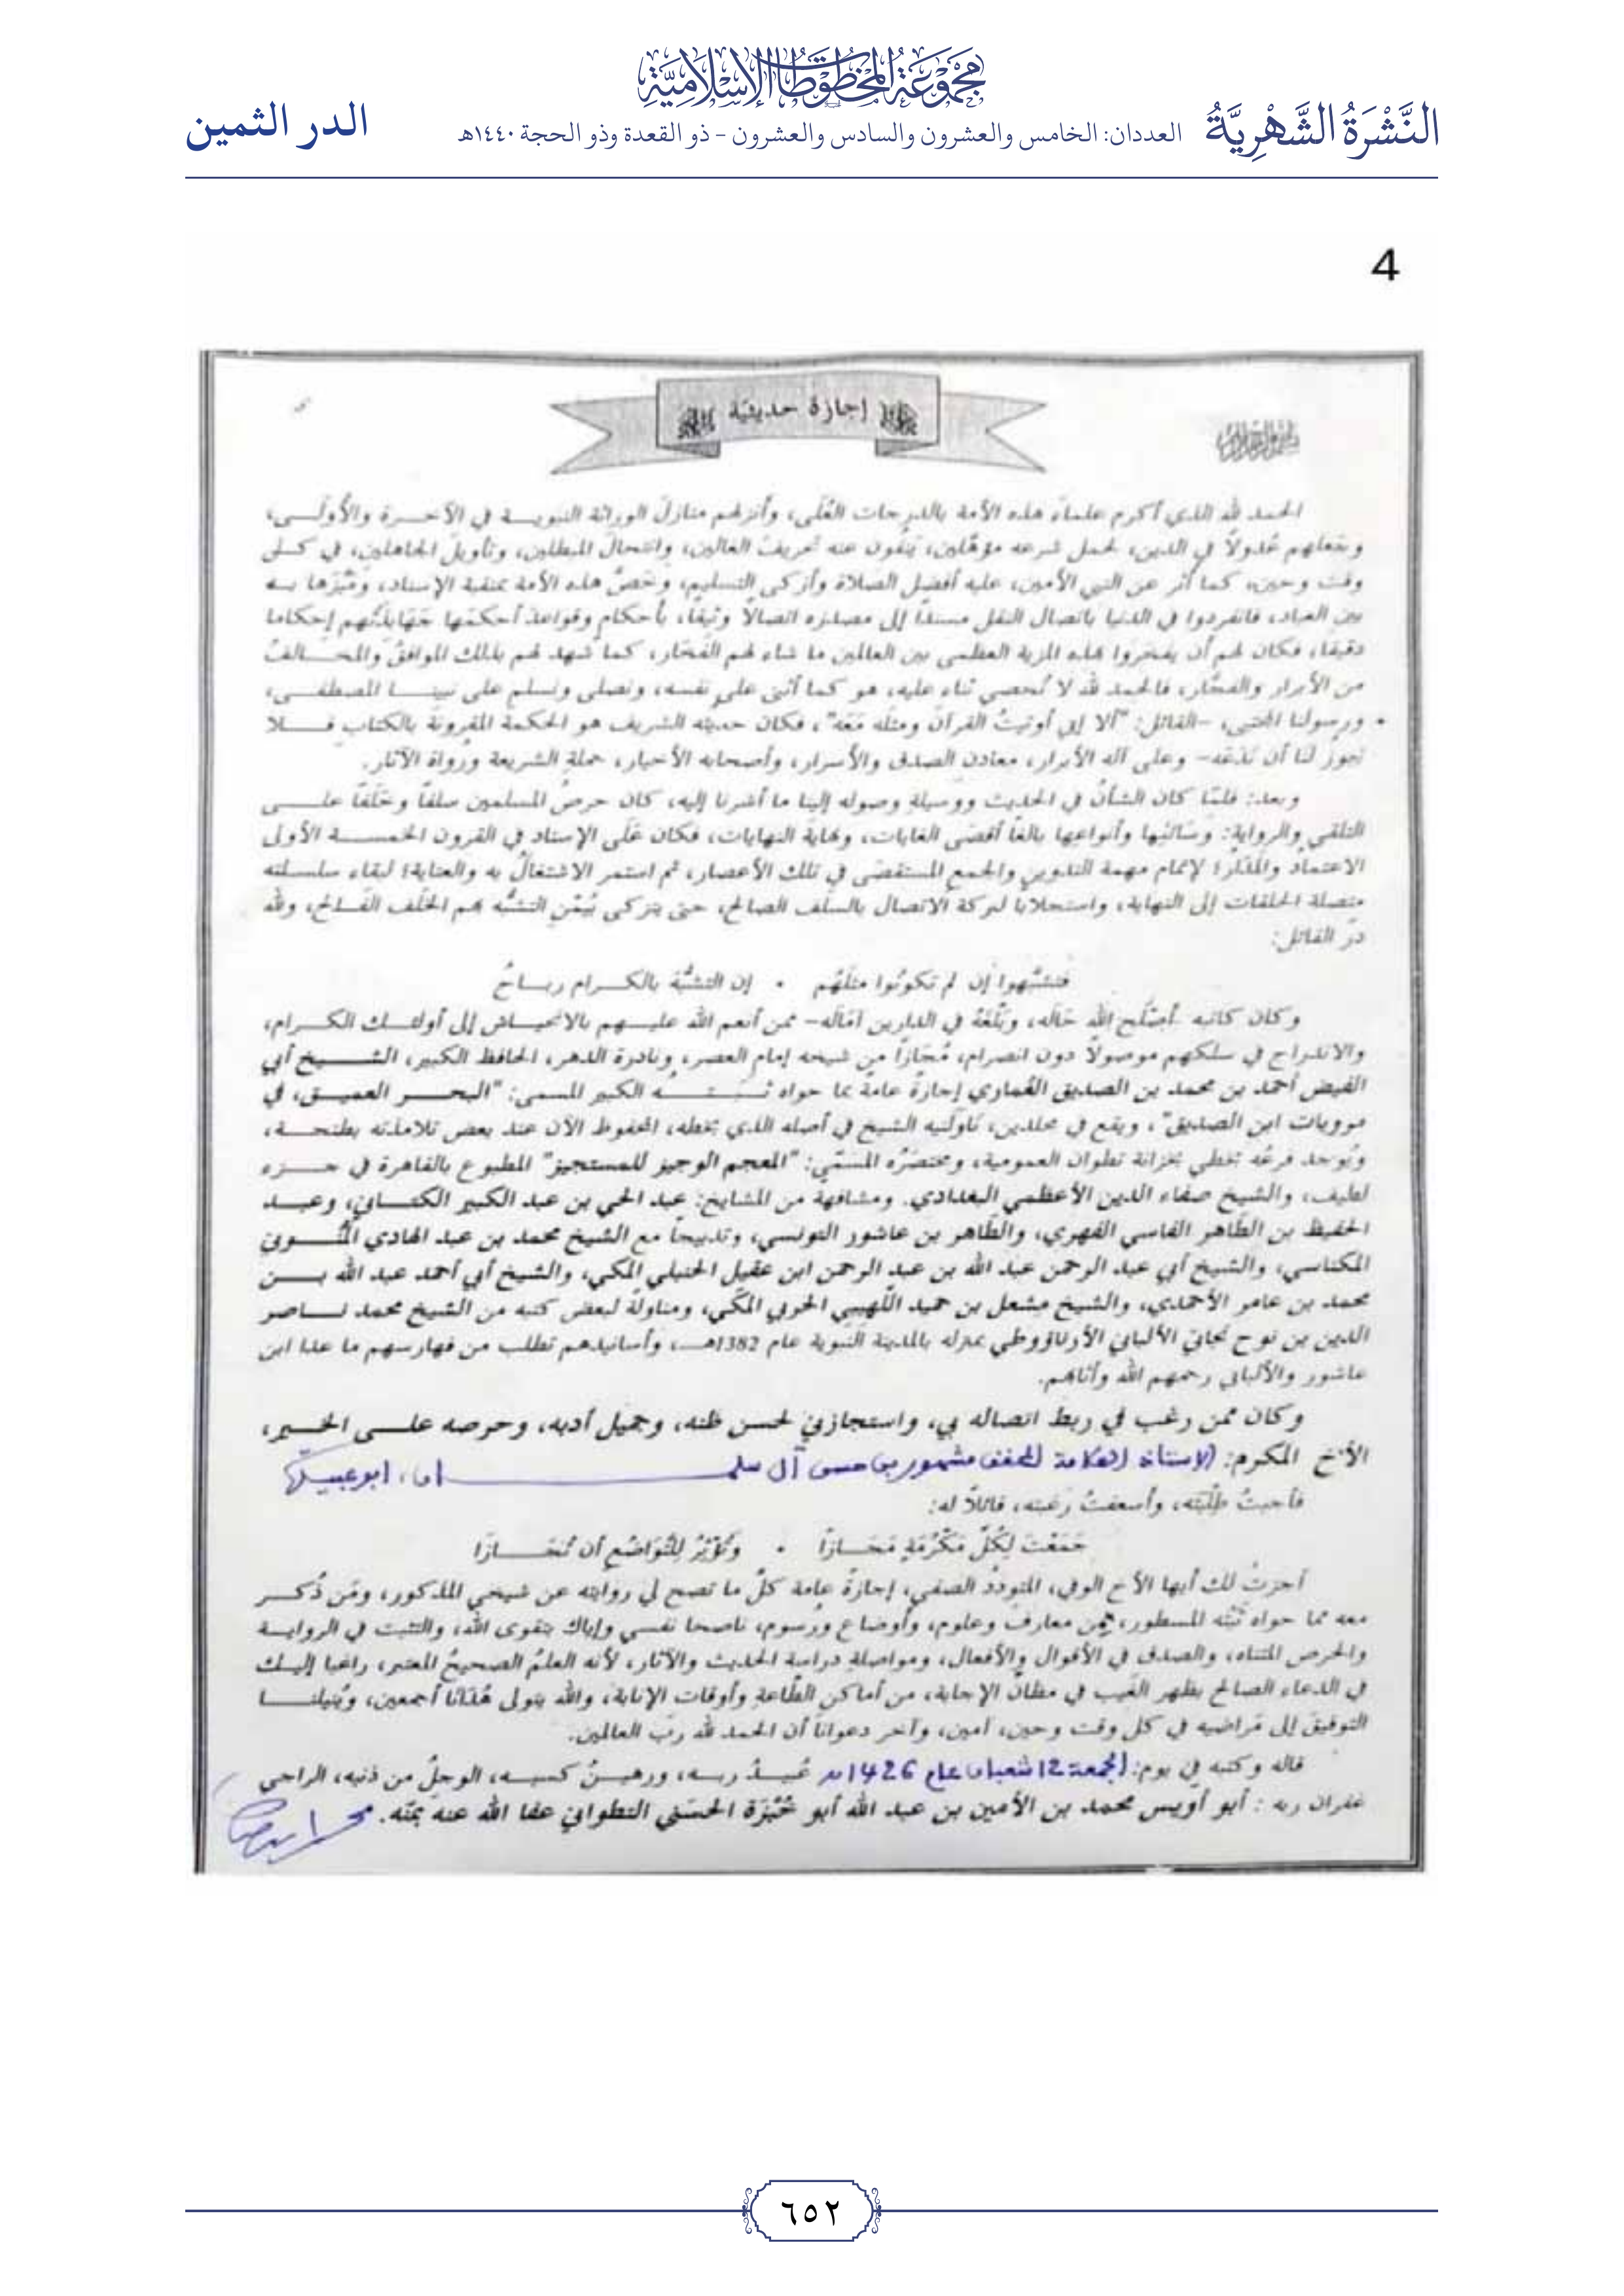 مجموعة المخطوطات الإسلامية
النَّشْرَةُ الشَّهْرِيَّةُ العددان: الخامس والعشرون والسادس والعشرون - ذو القعدة وذو الحجة ١٤٤٠هـ الدر الثمين
4
إجازة حديثية
الحمد لله الذي أكرم علماء هذه الأمة بالدرجات العُلَى، وأنزلهم منازلَ الوراثة النبويـــة في الآخـــرة والأُولَـــى،
وجعلهم عُدولاً في الدين، لحمل شرعه مؤهَّلين، يَنفُون عنه تحريفَ الغالين، وانتحالَ المبطلين، وتأويلَ الجاهلين، في كـــل
وقت وحين، كما أُثر عن النبي الأمين، عليه أفضل الصلاة وأزكى التسليم، وخصَّ هذه الأمة بمنقبة الإسناد، ومَيَّزَها بـــه
بين العباد، فانفردوا في الدنيا باتصال النقل مسنداً إلى مصدره اتصالاً وثيقاً، بأحكام وقواعدَ أحكمَها جَهابذَتُهم إحكاما
دقيقا، فكان لهم أن يفخروا بهذه المزية العظمى بين العالمين ما شاء لهم الفَخار، كما شهد لهم بذلك الموافقُ والمخـــالفُ
من الأبرار والفجّار، فالحمد لله لا نُحصي ثناء عليه، هو كما أثنى على نفسه، ونصلي ونسلم على نبينـــا المصطفـــى،
ورسولنا المجتبى، -القائل: "ألا إني أوتيتُ القرآنَ ومثلَه مَعَه"، فكان حديثه الشريف هو الحكمة المقرونة بالكتاب فـــلا
يجوز لنا أن نَدَعَه- وعلى آله الأبرار، معادن الصدق والأسرار، وأصحابه الأخيار، حملةِ الشريعة ورُواة الآثار.
وبعد: فلمّا كان الشأنُ في الحديث ووسيلةِ وصوله إلينا ما أشرنا إليه، كان حرصُ المسلمين سلفاً وخَلَفاً علـــى
التلقي والرواية: وسائلِها وأنواعِها بالغاً أقصَى الغايات، ونهايةَ النهايات، فكان عَلَى الإسناد في القرون الخمســـة الأولى
الاعتمادُ والمَدارُ؛ لإتمام مهمة التدوين والجمع المستقصَى في تلك الأعصار، ثم استمر الاشتغالُ به والعناية؛ لبقاء سلســـلته
متصلة الحلقات إلى النهاية، واستجلابا لبركة الاتصال بالسلف الصالح، حتى يتزكى بُيمْنِ التشبُّه بهم الخلَف الفـــالح، ولله
درّ القائل:
فتشبَّهوا إن لم تكونُوا مثلَهُم • إن التشبُّهَ بالكـــرام ربـــاحُ
وكان كاتبه -أصْلَح الله حَالَه، وبَلَّغَهُ في الدارين آمَالَه- ممن أنعم الله عليـــهم بالانحيـــاش إلى أولئـــك الكـــرام،
والاندراج في سلكهم موصولاً دون انصرام، مُجَازاً من شيخه إمامِ العصر، ونادرة الدهر، الحافظ الكبير، الشـــيخ أبي
الفيض أحمد بن محمد بن الصديق الغُماري إجازةً عامة بما حواه ثَبَـــتُـــه الكبير المسمى: "البحـــر العميـــق، في
مرويات ابن الصديق"، ويقع في مجلدين، نَاوَلَنيه الشيخ في أصله الذي بخطه، المحفوظ الآن عند بعض تلامذته بطنجـــة،
وتُوجد فرعُه بخطي بخزانة تطوان العمومية، ومختصَرُه المسمَّى: "المعجم الوجيز للمستجيز" المطبوع بالقاهرة في جـــزء
لطيف، والشيخ صفاء الدين الأعظمي البغدادي. ومشافهة من المشايخ: عبد الحي بن عبد الكبير الكتـــاني، وعبـــد
الحفيظ بن الطاهر الفاسي الفهري، والطّاهر بن عاشور التونسي، وتدبيجاً مع الشيخ محمد بن عبد الهادي المَنُّـــوني
المكناسي، والشيخ أبي عبد الرحمن عبد الله بن عبد الرحمن ابن عقيل الحنبلي المكي، والشيخ أبي أحمد عبد الله بـــن
محمد بن عامر الأحمدي، والشيخ مِشعل بن حميد اللّهيبي الحربي المكّي، ومناولةً لبعض كتبه من الشيخ محمد نـــاصر
الدين بن نوح نجاتي الألباني الأرناؤوطي بمنزله بالمدينة النبوية عام 1382هـــ، وأسانيدهم تطلب من فهارسهم ما عدا ابن
عاشور والألباني رحمهم الله وأثابهم.
وكان ممن رغب في ربط اتصاله بي، واستجازنيَ لحسن ظنه، وجميل أدبه، وحرصه علـــى الخـــير،
الأخ المكرم: الأستاذ العلامة المحقق مشهور بن حسن آل سلمـــان، أبو عبيدة
فأجبتُ طِلْبَتَه، وأسعفتُ رَغبته، قائلاً له:
جَمَعْتَ لِكُلِّ مَكْرُمَةٍ مَجَـــازَا • وَتُؤْثِرُ لِلتَّوَاضُعِ أن تُجَـــازَا
أجزتُ لك أيها الأخ الوفي، المتودِّدُ الصفي، إجازةً عامة كلَّ ما تصح لي روايته عن شيخي المذكور، ومَن ذُكـــر
معه مما حواه ثَبَتُه المسطور، مِن معارفَ وعلوم، وأوضاع ورُسوم، ناصحا نفسي وإياك بتقوى الله، والتثبت في الروايـــة
والحرص المتناه، والصدق في الأقوال والأفعال، ومواصلةِ دراسة الحديث والآثار، لأنه العلمُ الصحيحُ المعتبر، راغبا إليـــك
في الدعاء الصالح بظهر الغَيب في مظانّ الإجابة، من أماكن الطّاعةِ وأوقات الإنابة، والله يتولى هُدَانَا أجمعين، ويُنيلنـــا
التوفيقَ إلى مَراضيه في كل وقت وحين، آمين، وآخر دعوانا أن الحمد لله ربّ العالمين.
قاله وكتبه في يوم: الجمعة 12 شعبان عام 1426هـ عُبيـــدُ ربـــه، ورهيـــنُ كسبـــه، الوجِلُ من ذنبه، الراجي
غفران ربه : أبو أويس محمد بن الأمين بن عبد الله أبو خُبْزَة الحسَني التطواني عفا الله عنه بمنّه.
٦٥٢